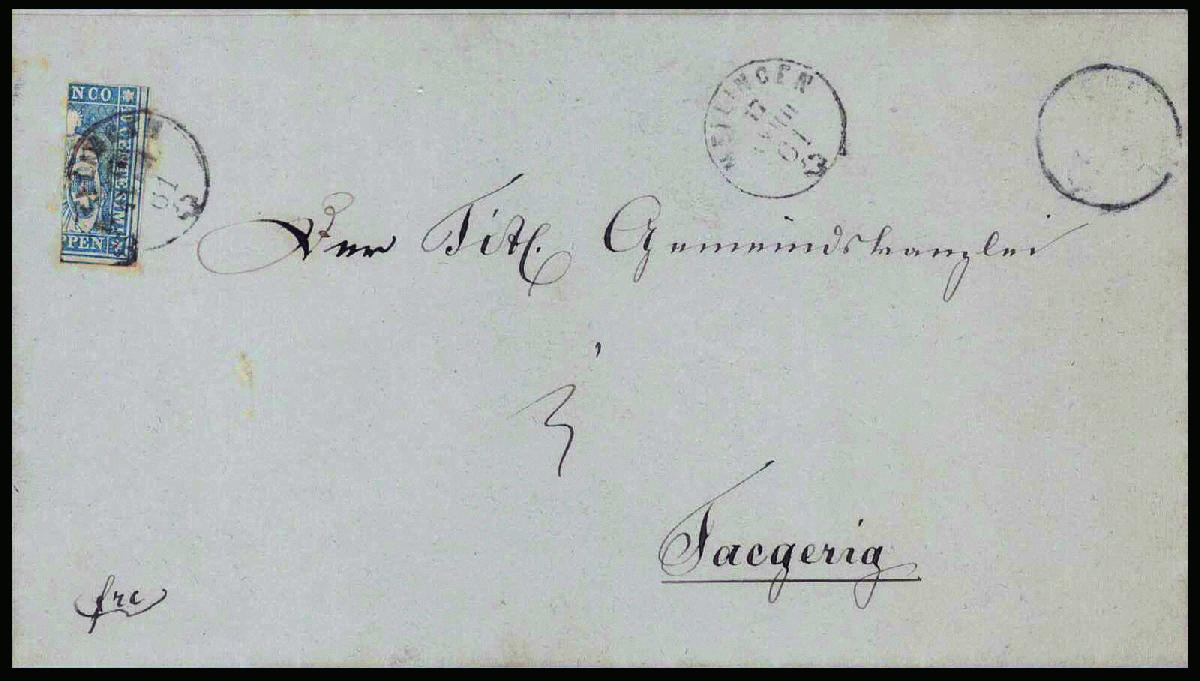 NCO
PPEN
61
MELLINGEN
61
Der Titl. Gemeindskanzlei
Taegerig
frc